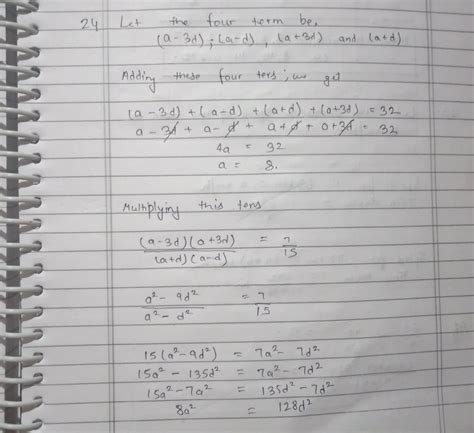 24 Let the four term be,
(a - 3d) ; (a - d) , (a + 3d) and (a + d)
Adding these four ters ; we get
(a - 3d) + (a - d) + (a + d) + (a + 3d) = 32
a - 3d + a - d + a + d + a + 3d = 32
4a = 32
a = 8.
Multiplying this tens
(a - 3d) (a + 3d) / (a + d) (a - d) = 7/15
a² - 9d² / a² - d² = 7/15
15 (a² - 9d²) = 7a² - 7d²
15a² - 135d² = 7a² - 7d²
15a² - 7a² = 135d² - 7d²
8a² = 128d²